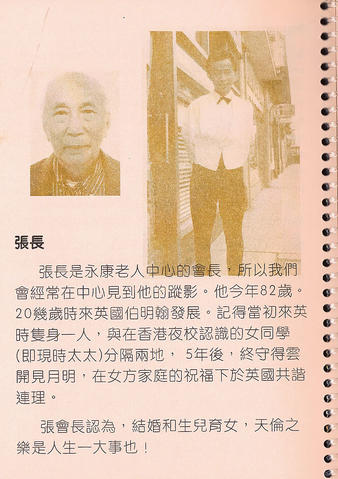 張長
張長是永康老人中心的會長，所以我們
會經常在中心見到他的蹤影。他今年82歲。
20幾歲時來英國伯明翰發展。記得當初來英
時隻身一人，與在香港夜校認識的女同學
(即現時太太)分隔兩地， 5年後，終守得雲
開見月明，在女方家庭的祝福下於英國共諧
連理。
張會長認為，結婚和生兒育女，天倫之
樂是人生一大事也！